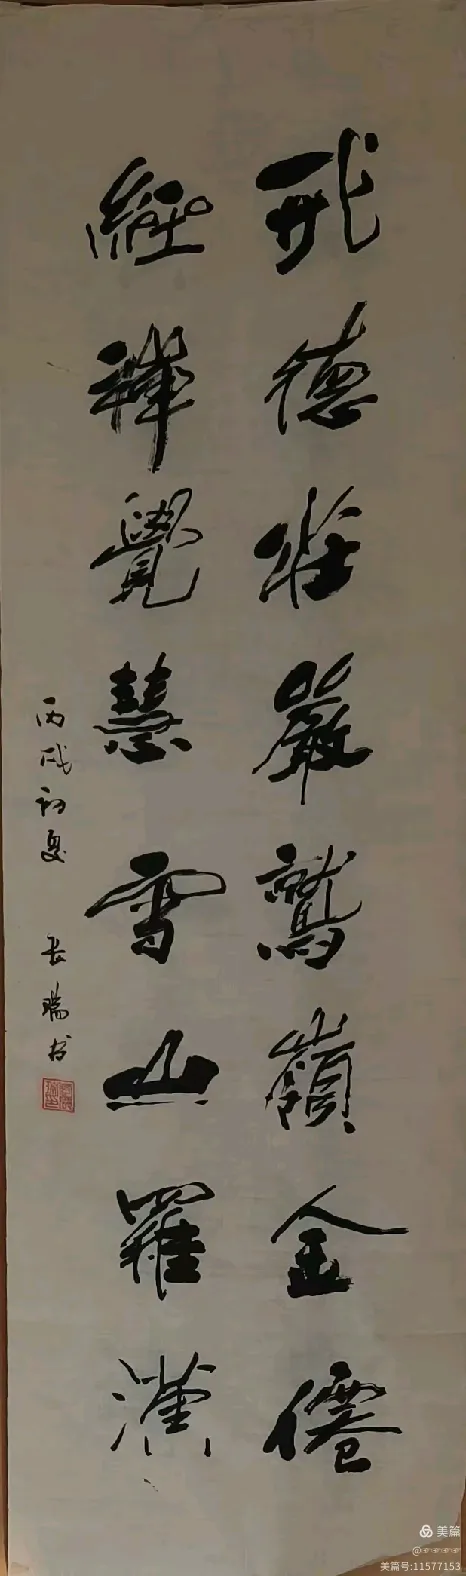 戒德莊嚴鷲嶺金僊
經禪覺慧雪山羅漢
丙戌初夏 長瑞书
美篇
@☞☞☞☞
美篇号:11577153